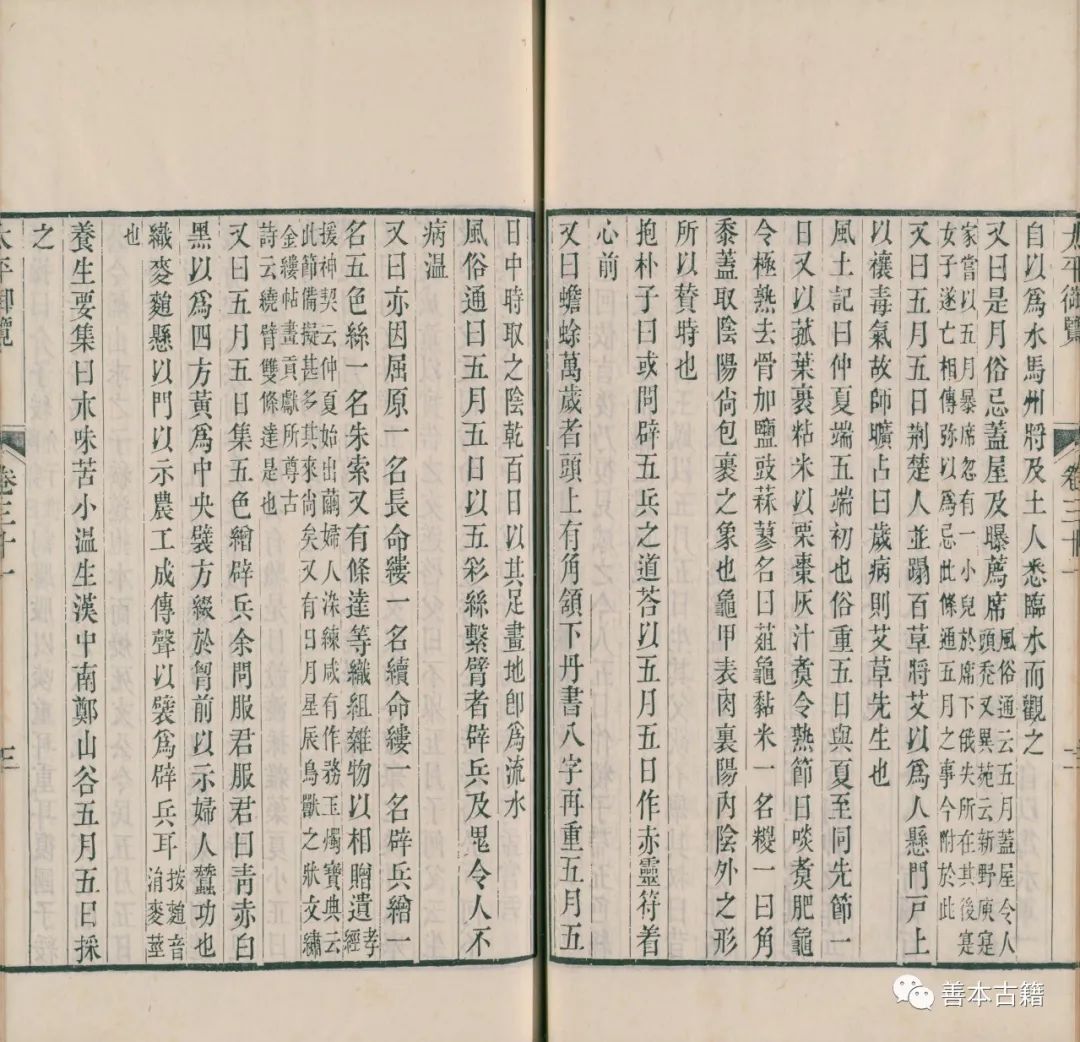 太平御覽 卷三十一
自以爲水馬州將及土人悉臨水而觀之
又曰是月俗忌蓋屋及曝薦席風俗通云五月蓋屋令人頭禿又異苑云新野庾寔
家嘗以五月暴席忽有一小兒於席下俄失所在其後寔女子遂亡相傳弥以爲忌此條通五月之事今附於此
又曰五月五日荆楚人並蹋百草將艾以爲人懸門戸上
以禳毒氣故師曠占曰歲病則艾草先生也
風土記曰仲夏端五端初也俗重五日與夏至同先節一
日又以菰葉裹粘米以栗棗灰汁煑令熟節日啖煑肥龜
令極熟去骨加鹽豉蒜蓼名曰葅龜黏米一名糉一曰角
黍蓋取陰陽尙包裹之象也龜甲表肉裏陽内陰外之形
所以贊時也
抱朴子曰或問辟五兵之道荅以五月五日作赤靈符着
心前
又曰蟾蜍萬歲者頭上有角頷下丹書八字再重五月五
日中時取之陰乾百日以其足畫地卽爲流水
風俗通曰五月五日以五彩絲繫臂者辟兵及鬼令人不
病温
又曰亦因屈原一名長命縷一名續命縷一名辟兵繒一
名五色絲一名朱索又有條達等織組雜物以相贈遺孝經
援神契云仲夏始出繭婦人染練咸有作務玉燭寶典云此節備擬甚多其來尙矣又有日月星辰鳥獸之狀文繡
金縷帖畫貢獻所尊古詩云繞臂雙條達是也
又曰五月五日集五色繒辟兵余問服君服君曰青赤白
黑以爲四方黃爲中央襞方綴於胷前以示婦人蠶功也
織麥䅌懸以門以示農工成傳聲以襞爲辟兵耳按䅌音涓麥莖
也
養生要集曰朮味苦小温生漢中南鄭山谷五月五日採
之
太平御覽 卷三十一 三
善本古籍